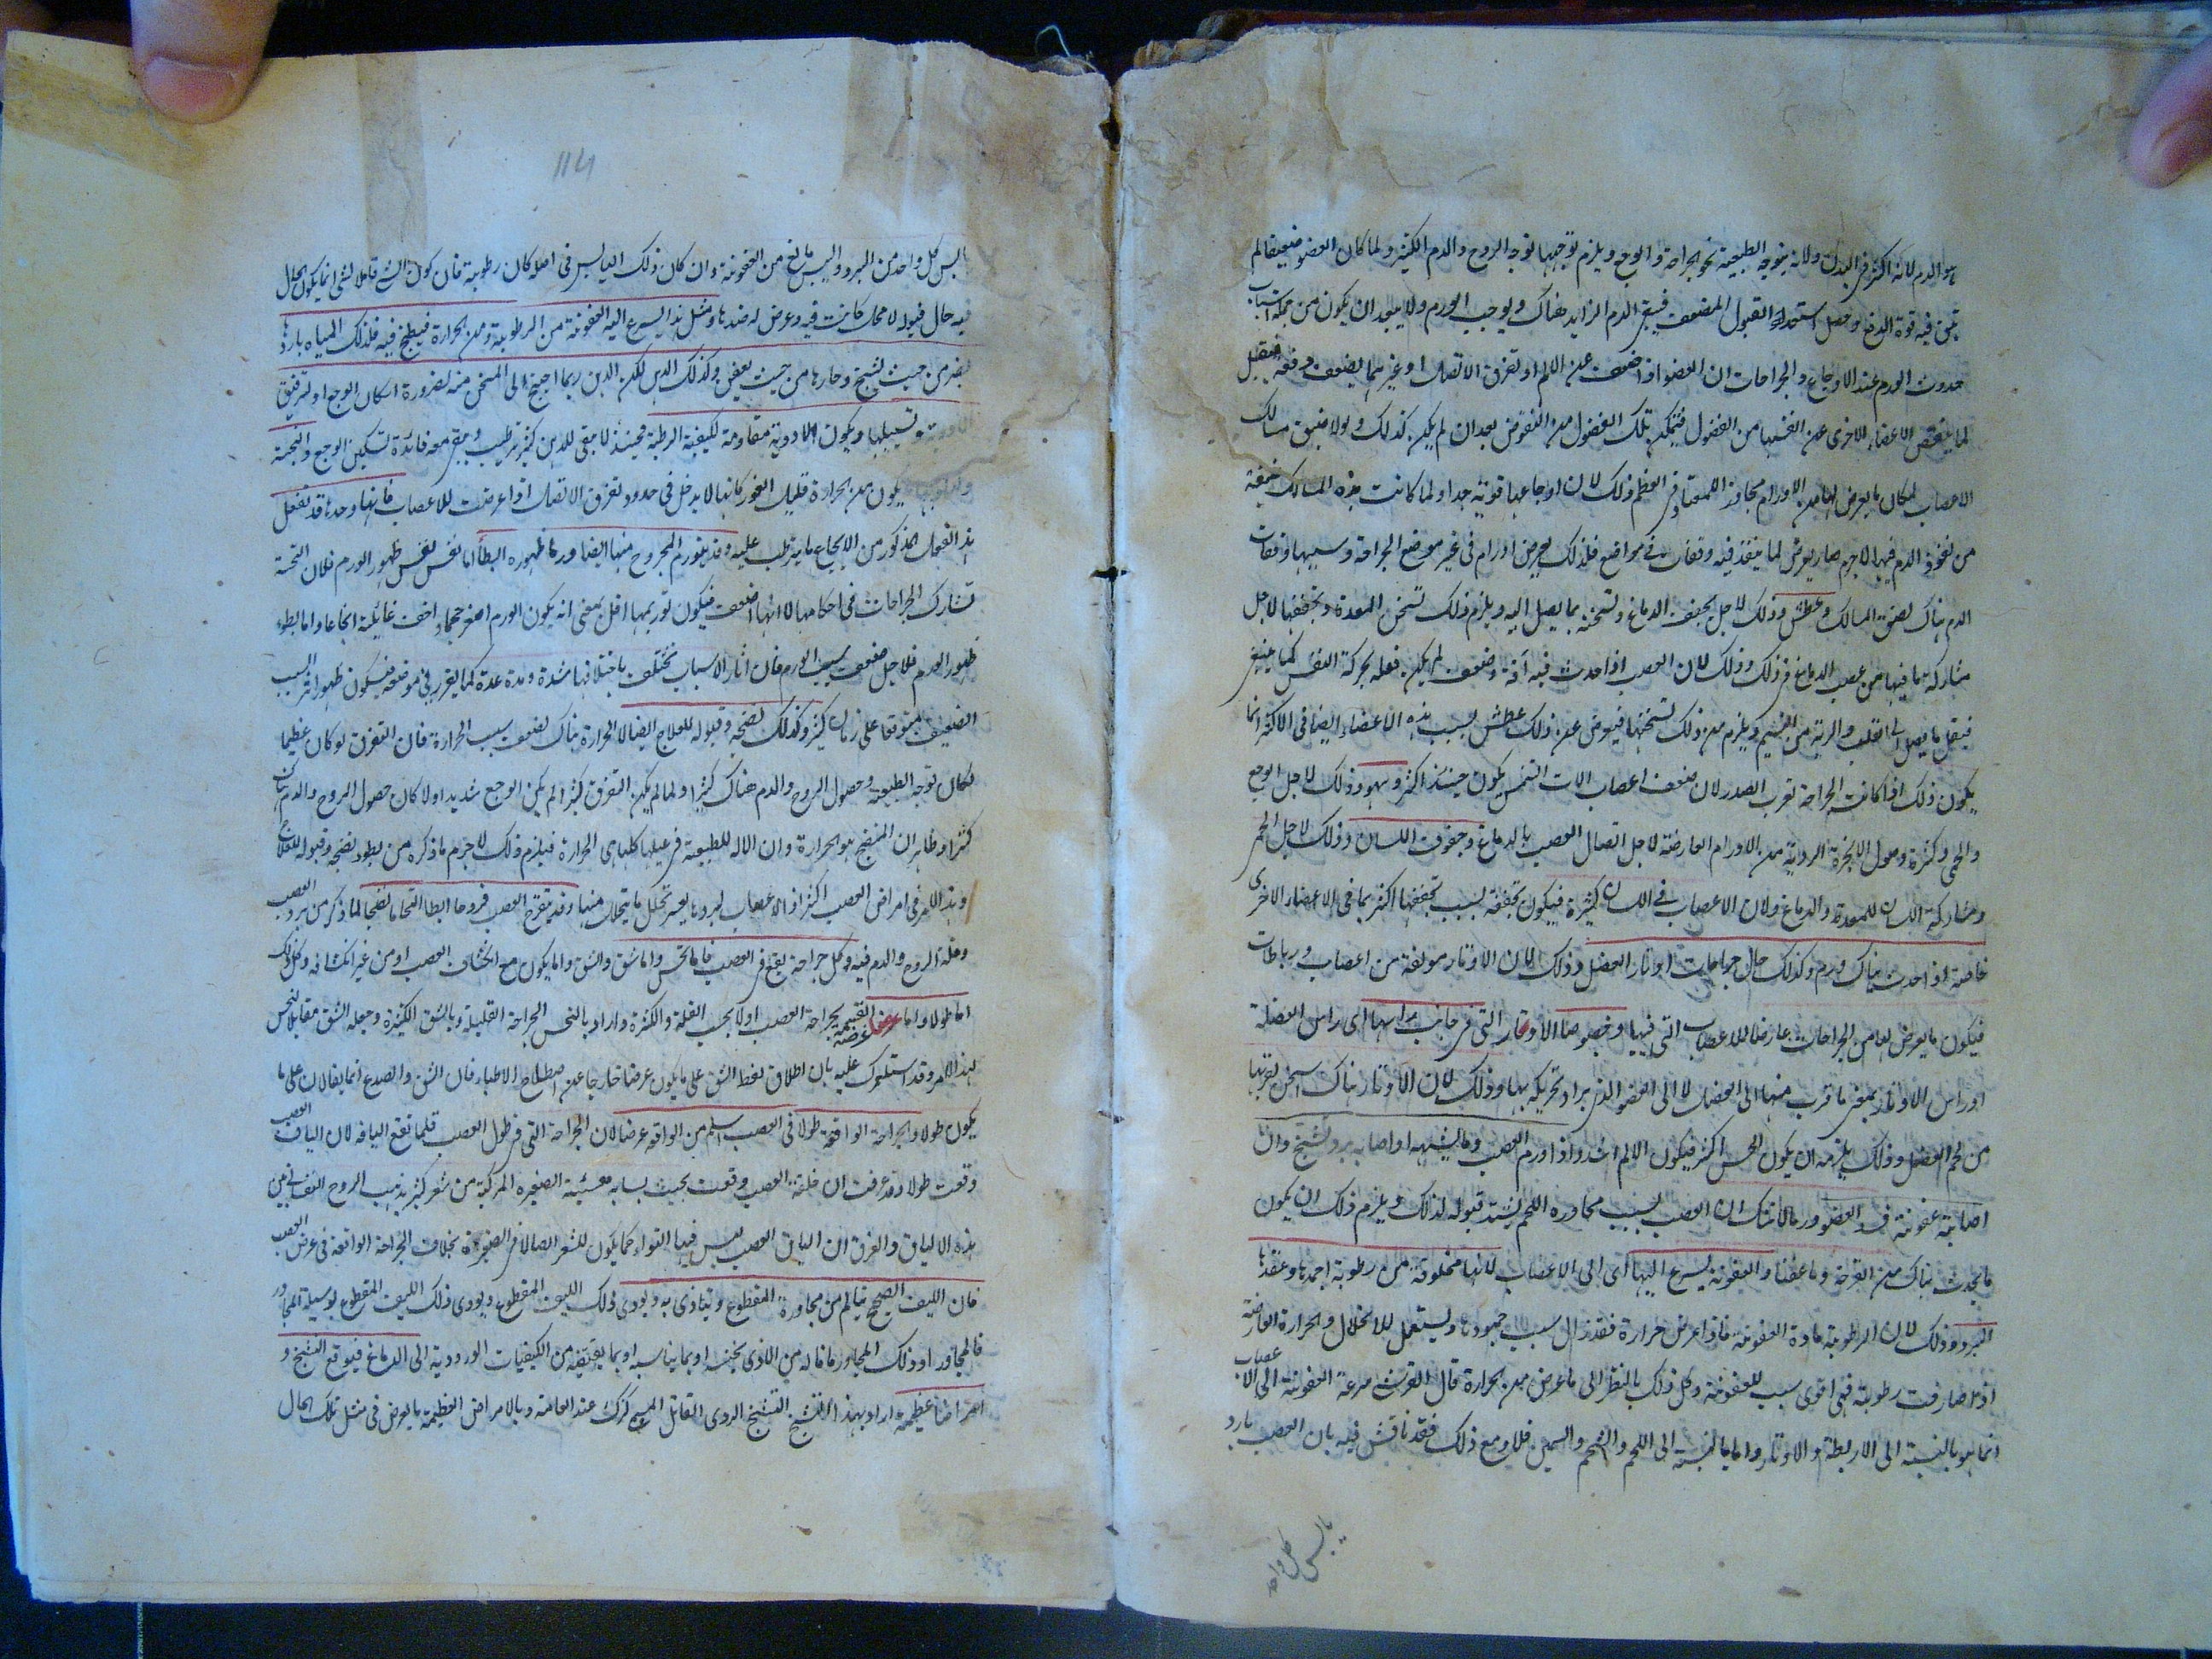 هو الدم لانه اكثر فى البدن ولانه بتوجه الطبيعة نحو الجراحة والوجع ويلزم توجهها توجه الروح والدم الكثير ولما كان العضو ضعيفا لم
يبق فيه قوة الدفع وحصل استعداد القبول لضعف فيبقى الدم الزايد هناك ويوجب الورم ولا يبعد ان يكون من جملة اسباب
حدوث الورم عند الاوجاع والجراحات ان العضو اذا ضعف عن الالم او تفرق الاتصال او غيرهما يضعف دفعه فيقبل
لما ينفض الاعضاء الاخرى عن انفسها من الفضول فتتمكن تلك الفضول من النفوذ بعد ان لم يكن كذلك ولولا ضيق مسالك
الاعصاب لكان ما يعرض لها من الاورام مجاوزا للمعتاد فى العظم وذلك لان اوجاعها قوية جدا ولما كانت هذه المسالك ضيقة
من نفوذ الدم فيها لاجرم صار يعرض لما ينفذ فيه وقفات فى مواضع فلذلك يعرض اورام فى غير موضع الجراحة وسببها وقفات
الدم هناك لضيق المسالك وعطش وذلك لاجل تجفف الدماغ وتسخنه بما يصل اليه ويلزم ذلك تسخن المعدة وتجففها لاجل
مشاركة ما فيها من عصب الدماغ فى ذلك وذلك لان العصب اذا حدث فيه آفة وضعف لم يكن فعله بحركة النفس كما ينبغى
فيقل ما يصل الى القلب والرئة من النسيم ويلزم من ذلك تسخنهما فيعرض عن ذلك عطش بسبب هذه الاعضاء ايضا فى الاكثر انما
يكون ذلك اذا كانت الجراحة بقرب الصدر لان ضعف اعصاب الات التنفس يكون حينئذ اكثر وسهر وذلك لاجل الوجع
والحمى وكثرة وصول الابخرة الردية من الاورام العارضة لاجل اتصال العصب بالدماغ وجفوف اللسان وذلك لاجل الحمى
ومشاركة اللسان للمعدة والدماغ ولان الاعصاب فى اللسان كثيرة فيكون تجففه بسبب تجففها اكثر مما فى الاعضاء الاخرى
خاصة اذا حدث هناك ورم وكذلك حال جراحات اوتار العضل وذلك لان الاوتار مولفة من اعصاب ورباطات
فيكون ما يعرض لها من الجراحات عارضا للاعصاب التى فيها وخصوصا الاوتار التى فى جانب راسها اى راس العضلة
او راس الاوتار بمعنى ما قرب منها الى العضل لا الى العضو الذى يراد تحريكه بها وذلك لان الاوتار هناك اسخن لقربها
من لحم العضل وذلك يلزمه ان يكون الحس اكثر فيكون الالم اشد واذا ورم العصب وما يشبهه او اصابه برد تشنج وان
اصابته عفونة فسد العضو وربما لا شك ان العصب بسبب مجاورة اللحم يشتد قبوله لذلك ويلزم ذلك ان يكون
ما يحدث هناك من القرحة وما عفنا والعفونة يسرع اليها اى الى الاعصاب لانها مخلوقة من رطوبة اجمدها وعقدها
البرد وذلك لان الرطوبة مادة العفونة فاذا عرض حرارة فقد زال سبب جمودها ويستعمل للانحلال والحرارة العارضة
اذا صارفت رطوبة فهى اقوى سبب للعفونة وكل ذلك بالنظر الى ما عرض من حرارة قال القرشى سرعة العفونة الى الاعصاب
انما هو بالنسبة الى الاربطة والاوتار واما بالنسبة الى اللحم والشحم والسمين فلا ومع ذلك فقد ناقش فيه بان العصب بارد
يابس كل واحد
114
يابس كل واحد من البرد واليبس مانع من العفونة وان كان ذلك اليابس فى اصله كان رطوبة فان كون الشئ قابلا لشئ انما يكون بحال
فيه حال قبوله لا بحال كانت فيه وعرض له ضدها ومثل هذا يسرع اليه العفونة من الرطوبة ومن الحرارة فيطبخ فيه فلذلك المياه باردها
يضر من حيث تشنج وحارها من حيث يعفن وكذلك الدهن لكن الدهن ربما احتيج الى المسخن منه لضرورة اسكان الوجع او لترقيق
الادوية وتسييلها ويكون الادوية مقاومة لكيفيته الرطبة فحينئذ لا يبقى للدهن كثير ترطيب ويبقى معه فائدة تسكين الوجع والنجبة
يكون من الحرارة قليل الغور كانها لا يدخل فى حدود تفرق الاتصال اذا عرضت للاعصاب فانها وحدها قد تفعل
هذا الفعل المذكور من الايجاع ما يترتب عليه وقد يتورم المجروح منها ايضا وربما ظهوره ابطأ اما نفس ظهور الورم فلان النخسة
تشارك الجراحات فى احكامها الا انها اضعف فيكون توريمها اقل بمعنى انه يكون الورم اصغر حجما واخف غايلة ايجاعا واما بطوء
ظهور الورم فلاجل ضعف سبب الورم فان آثار الاسباب تختلف باختلافها شدة ومدة عدة كما يقرر فى موضعه فيكون ظهور اثر السبب
الضعيف متوقفا على زمان كثير وكذلك نضجه وقبوله للعلاج ايضا لان الحرارة هناك لضعف سبب الحرارة فان التفرق لو كان عظيما
لكان توجه الطبيعة وحصول الروح والدم هناك كثيرا ولما لم يكن التفرق كثيرا لم يكن الوجع شديدا ولا كان حصول الروح والدم هناك
كثيرا وظاهر ان المنضج هو الحرارة وان الالة للطبيعة فى فعلها كلها هى الحرارة فيلزم ذلك لاجرم ما ذكره من بطوء نضجه وقبوله للعلاج
وهذا الامر فى امراض العصب اكثر اذ الاعصاب لبردها يعسر تحلل ما يتحلل منها وقد يتقرح العصب قروحا ابطا التحاما نضجا لما ذكر من برد العصب
وقلة الروح والدم فيه وكل جراحة يقع فى العصب فاما نخس واما شق والشق واما يكون مع انكشاف العصب او من غير انكشافه وكل ذلك
اما طولا واما عرضا القسيم بجراحة العصب اولا بحسب القلة والكثرة واراد بالنخس الجراحة القليلة وبالشق الكثيرة وجعله الشق مقابلا للنخس
لهذا الامر وقد استدرك عليه بان اطلاق لفظ الشق على ما يكون عرضا خارجا عن اصطلاح الاطباء فان الشق والصدع انما يقالان على ما
يكون طولا والجراحة الواقعة طولا فى العصب اسلم من الواقعة عرضا لان الجراحة التى فى طول العصب قلما تقع اليافه لان الياف العصب
وقعت طولا وقد عرفت ان خلقة العصب وقعت بحيث يشابه هيئته الضفيره المركبة من شعر كثير يذهب الروح النفسانى بين
هذه الالياف والفرق ان الياف العصب ليس فيها التواء كما يكون للشعر الصالح فى الضفيرة بخلاف الجراحة الواقعة فى عرض العصب
فان الليف الصحيح يتالم من مجاورة المقطوع ويتاذى به ويودى ذلك الليف المقطوع ويودى ذلك الليف المقطوع بوسيلة المجاور
فالمجاور او ذلك المجاور ما ناله من الاذى بجنسه او بما يناسبه او بما يقتضيه من الكيفيات الوردية الى الدماغ فيوقع التشنج و
امراضا عظيمة اراد بهذا التشنج التشنج الردى القاتل المسمى كزك عند العامة وبالامراض العظيمة ما يعرض فى مثل تلك الحال